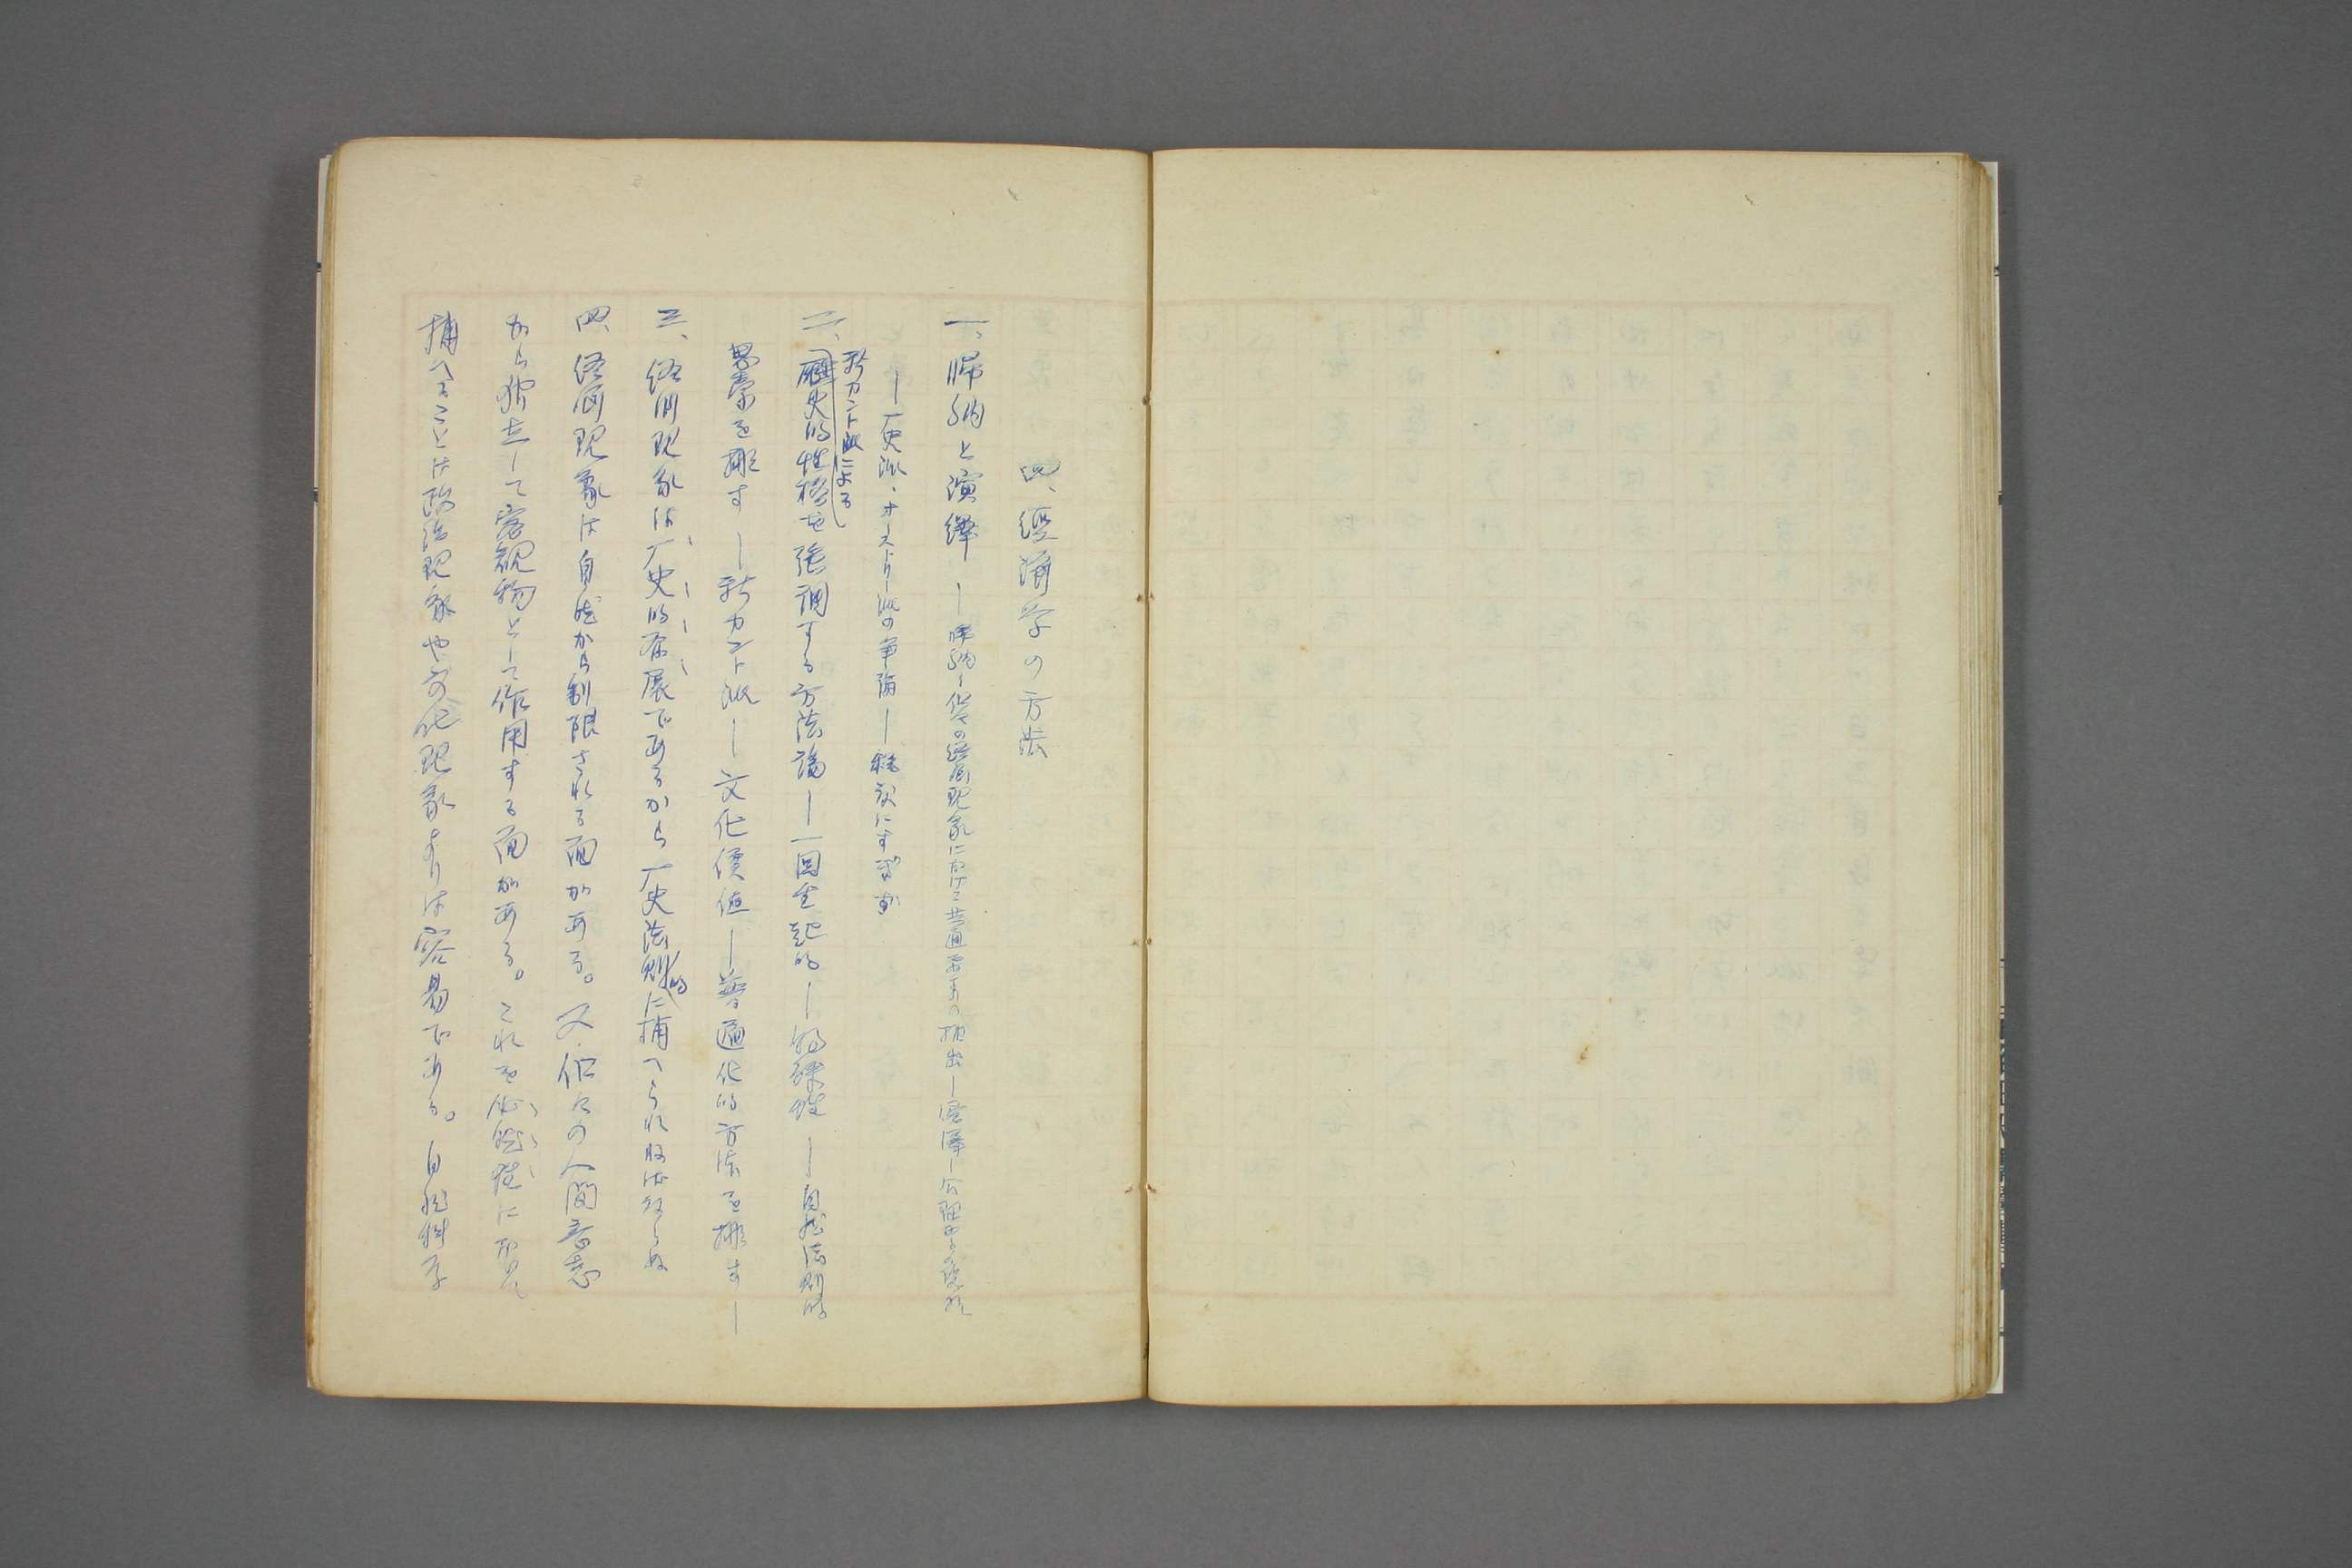 四、經濟学の方法
一、帰納と演繹 ― 帰納―個々の経済現象に於ける共通要素の抽出―演繹―公理からの発展
―厂史派、オーストリー派の争論―
新カント派による
二、歴史的性格を強調する方法論―一回生起的―特殊性―自然法則的
思索を排す―新カント派―文化價値―普遍化的方法を排す―
三、経済現象は厂史的発展であるから厂史法則的に捕へられねばならぬ
四、経済現象は自然から制限される面がある。又、個々の人間意志
から独立して客観物として作用する面がある。これを必然性に於て
捕へることは政治現象や文化現象よりは容易である。自然科学